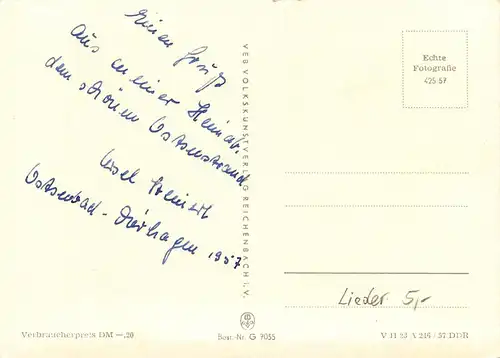 Einen Gruß
aus meiner Heimat,
dem schönen Ostseestrand
Ostseebad - Dierhagen 1957
VEB VOLKSKUNSTVERLAG REICHENBACH I.V.
Echte
Fotografie
425/57
Lieder 5,-
Verbraucherpreis DM —,20
Best.-Nr. G 9055
V 11 23 A 216 / 57 DDR